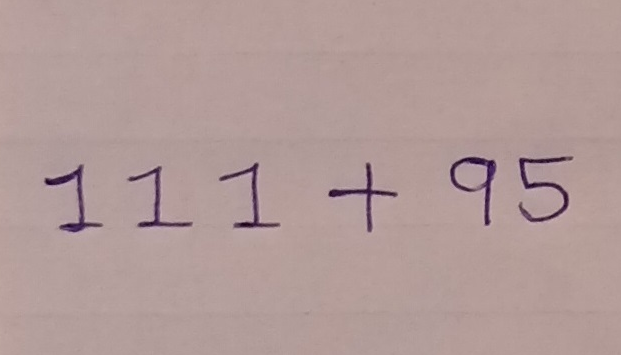 111 + 95